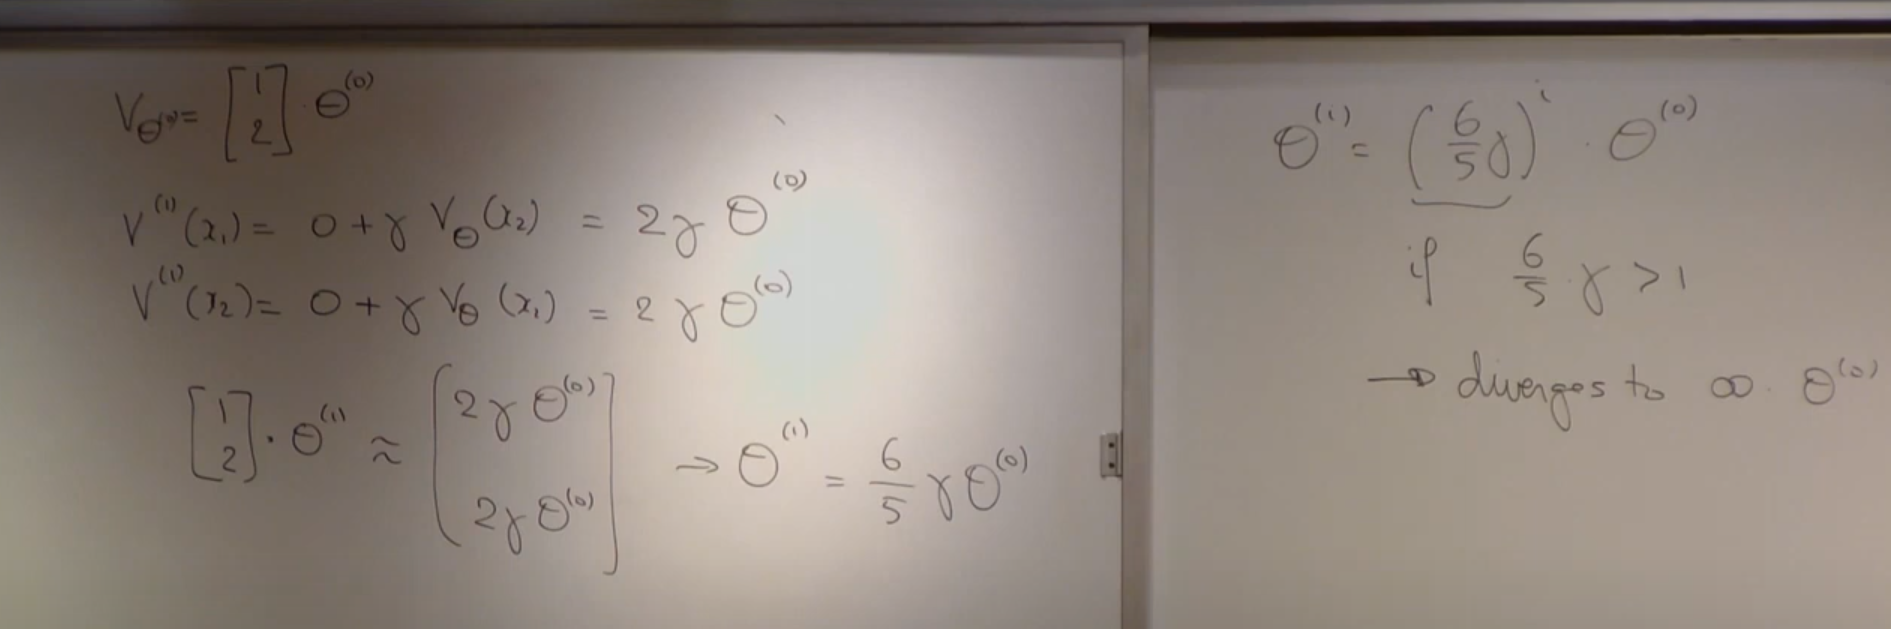 V_θ^(0) = [1 2] · θ^(0)
V^(1)(x₁) = 0 + γ V_θ(x₂) = 2γ θ^(0)
V^(1)(x₂) = 0 + γ V_θ(x₁) = 2γ θ^(0)
[1 2] · θ^(1) ≈ [2γ θ^(0) 2γ θ^(0)] → θ^(1) = 6/5 γ θ^(0)
θ^(i) = (6/5 γ)^i · θ^(0)
if 6/5 · γ > 1
→ diverges to ∞ · θ^(0)